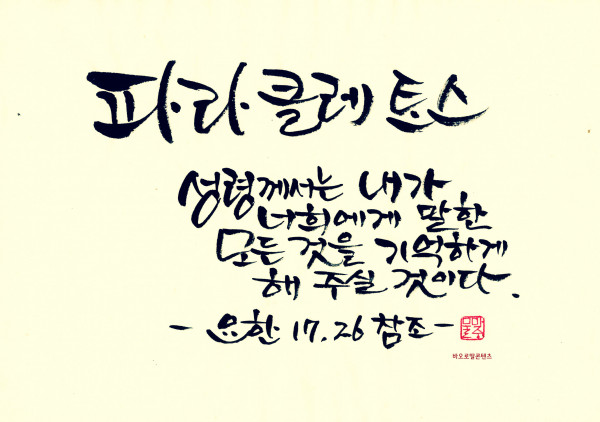 파·라·클레토스
성령께서는 내가
너희에게 말한
모든 것을 기억하게
해 주실 것이다.
- 요한 17,26 참조 -
바오로딸콘텐츠